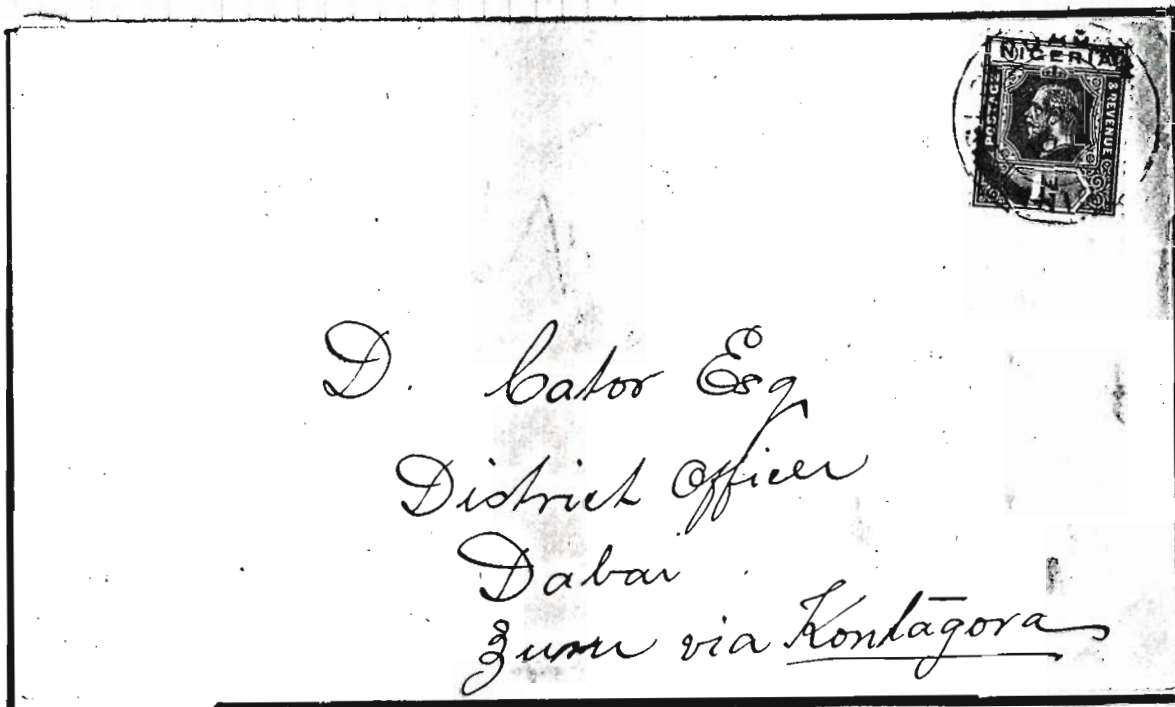 NIGERIA
POSTAGE
& REVENUE
D. Cator Esq
District Officer
Dabai
Zuru via Kontāgora